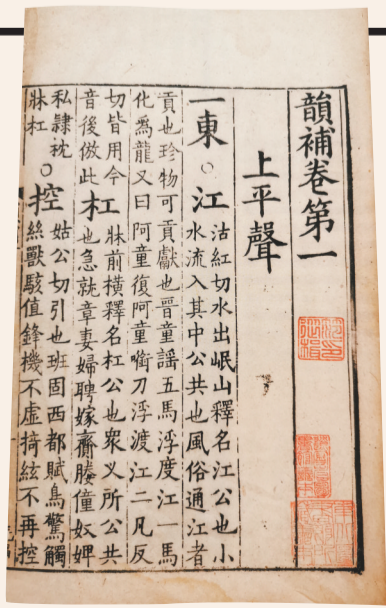 韻補卷第一
上平聲
一東○江沽紅切水出岷山釋名江公也小
水流入其中公共也風俗通江者
貢也珍物可貢獻也晉童謠五馬浮度江一馬
化為龍又曰阿童復阿童銜刀浮渡江二凡反
切皆用今
音後倣此
杠牀前橫釋名杠公也衆义所公共
也急就章妻婦聘嫁齎媵僮奴婢
私隷枕
牀杠
○控姑公切引也班固西都賦鳥驚觸
絲獸駭值鋒機不虛掎絃不再控